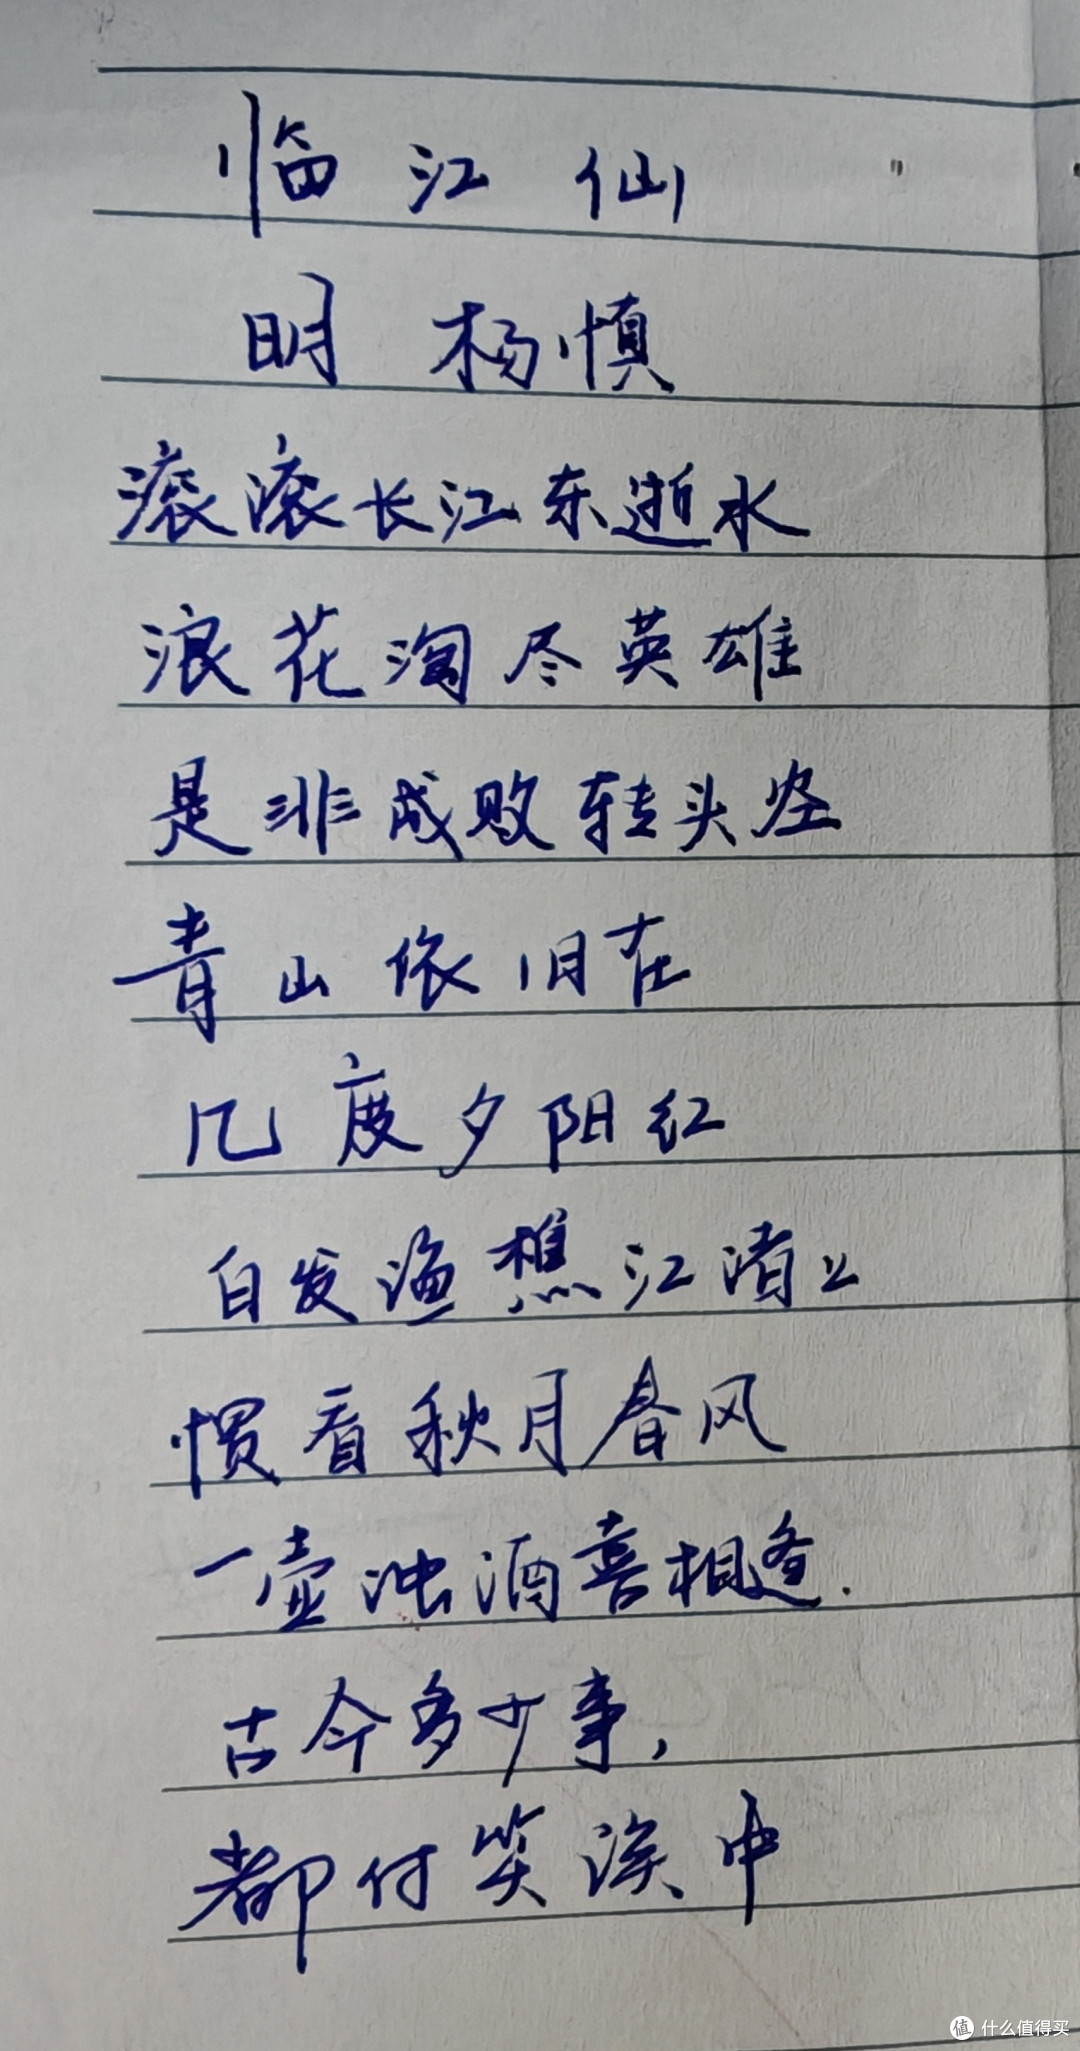 临江仙
明 杨慎
滚滚长江东逝水
浪花淘尽英雄
是非成败转头空
青山依旧在
几度夕阳红
白发渔樵江渚上
惯看秋月春风
一壶浊酒喜相逢.
古今多少事,
都付笑谈中
值 什么值得买